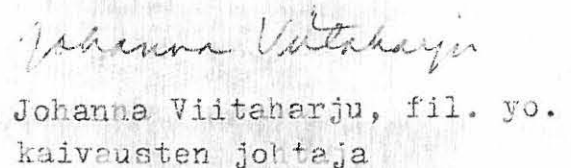 Johanna Viitaharju
Johanna Viitaharju, fil. yo.
kaivausten johtaja